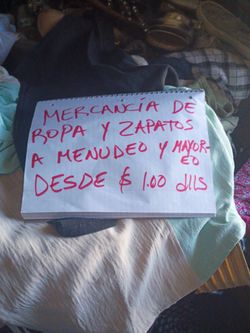 MERCANCIA DE
ROPA Y ZAPATOS
A MENUDEO Y MAYOR-
EO
DESDE $ 1.00 dlls